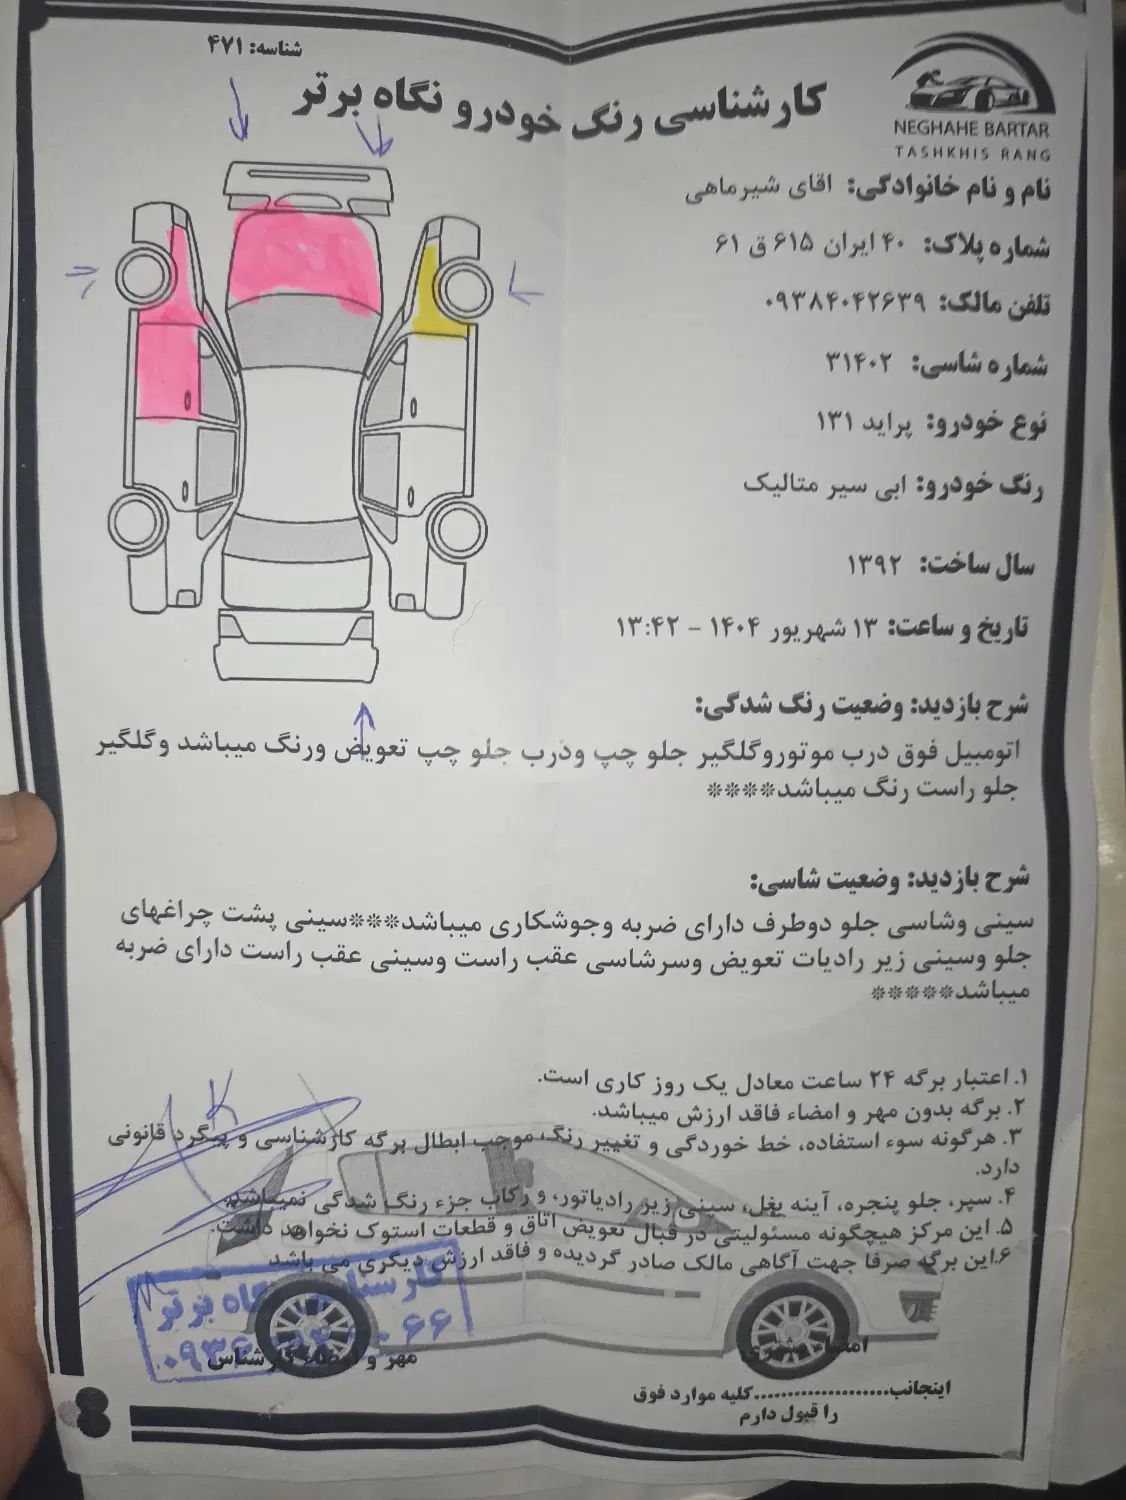 شناسه: ۴۷۱
کارشناسی رنگ خودرو نگاه برتر
NEGHAHE BARTAR
TASHKHIS RANG
نام و نام خانوادگی: اقای شیرماهی
شماره پلاک: ۴۰ ایران ۶۱۵ ق ۶۱
تلفن مالک: ۰۹۳۸۴۰۴۲۶۳۹
شماره شاسی: ۳۱۴۰۲
نوع خودرو: پراید ۱۳۱
رنگ خودرو: ابی سیر متالیک
سال ساخت: ۱۳۹۲
تاریخ و ساعت: ۱۳ شهریور ۱۴۰۴ - ۱۳:۴۲
شرح بازدید: وضعیت رنگ شدگی:
اتومبیل فوق درب موتوروگلگیر جلو چپ وذرب جلو چپ تعویض ورنگ میباشد وگلگیر
جلو راست رنگ میباشد****
شرح بازدید: وضعیت شاسی:
سینی وشاسی جلو دوطرف دارای ضربه وجوشکاری میباشد***سینی پشت چراغهای
جلو وسینی زیر رادیات تعویض وسرشاسی عقب راست وسینی عقب راست دارای ضربه
میباشد*****
۱. اعتبار برگه ۲۴ ساعت معادل یک روز کاری است.
۲. برگه بدون مهر و امضاء فاقد ارزش میباشد.
۳. هرگونه سوء استفاده، خط خوردگی و تغییر رنگ موجب ابطال برگه کارشناسی و پیگرد قانونی
دارد.
۴. سپر، جلو پنجره، آینه بغل، سینی زیر رادیاتور، و رکاب جزء رنگ شدگی نمیباشد.
۵. این مرکز هیچگونه مسئولیتی در قبال تعویض اتاق و قطعات استوک نخواهد داشت.
۶.این برگه صرفا جهت آگاهی مالک صادر گردیده و فاقد ارزش دیگری می باشد
کارشناسی نگاه برتر
مهر و امضاء کارشناس
امضاء مشتری
اینجانب....................کلیه موارد فوق
را قبول دارم